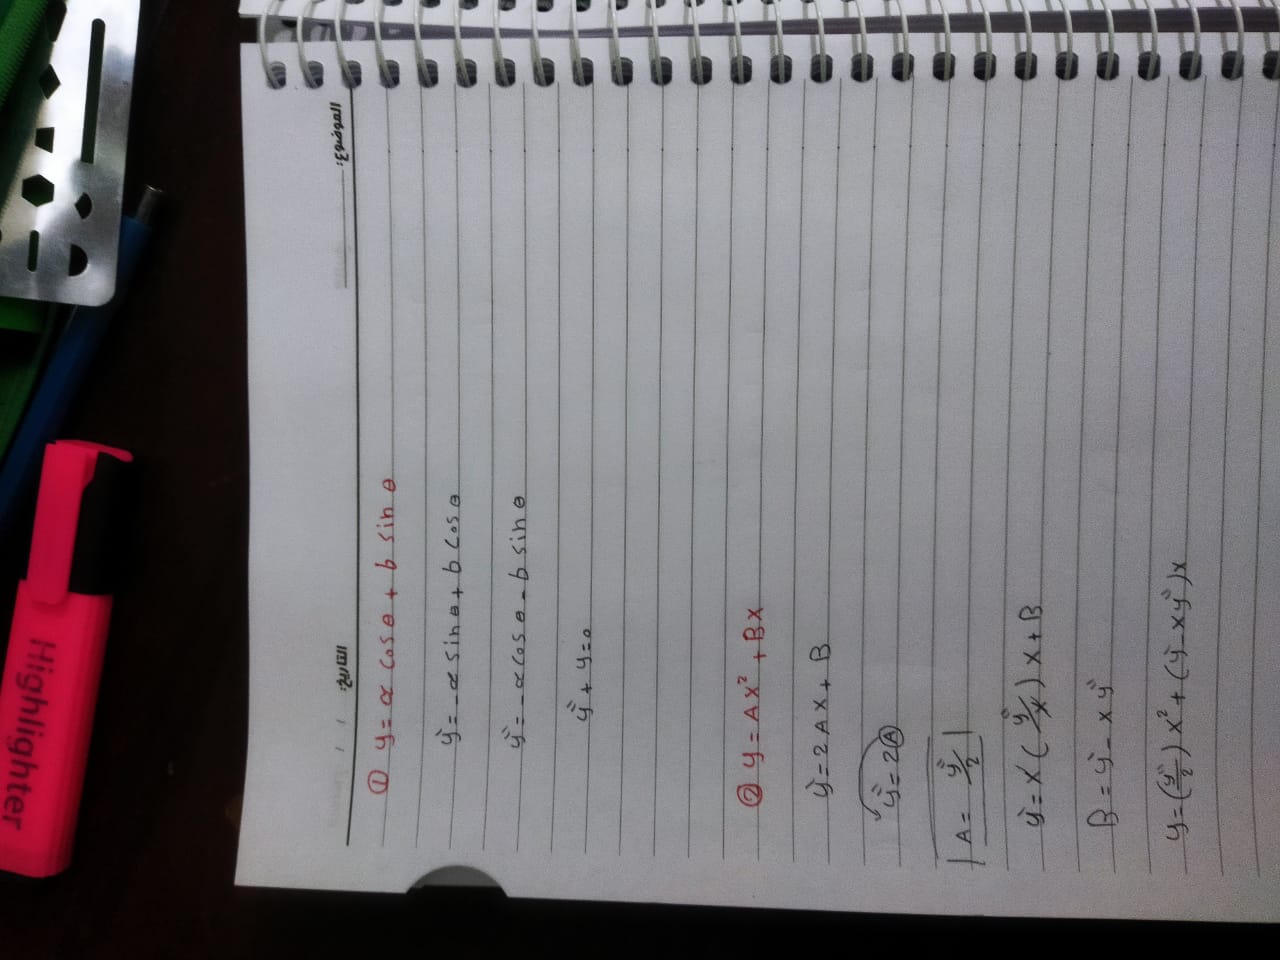 Highlighter
الموضوع: التاريخ: / /
① y = α cos θ + b sin θ
y` = -α sin θ + b cos θ
y`` = -α cos θ - b sin θ
y`` + y = 0
② y = Ax² + Bx
y` = 2Ax + B
y`` = 2A
A = y``/2
y` = 2(y``/2)x + B
B = y` - xy``
y = (y``/2)x² + (y` - xy``)x